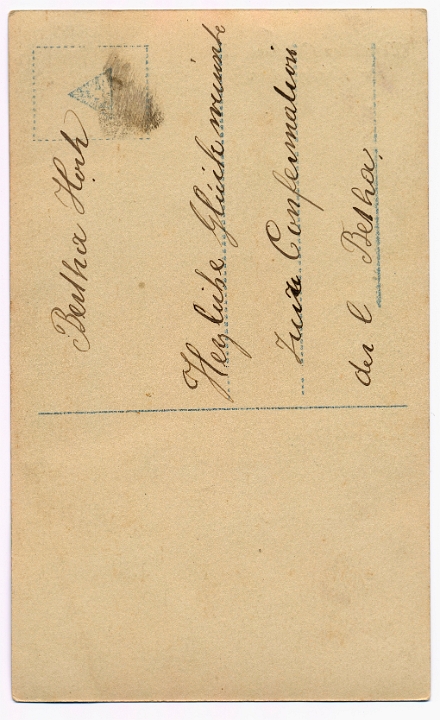 Bertha Hock
Hezliche Glückwünsche
zur Confermation
der l Betha.